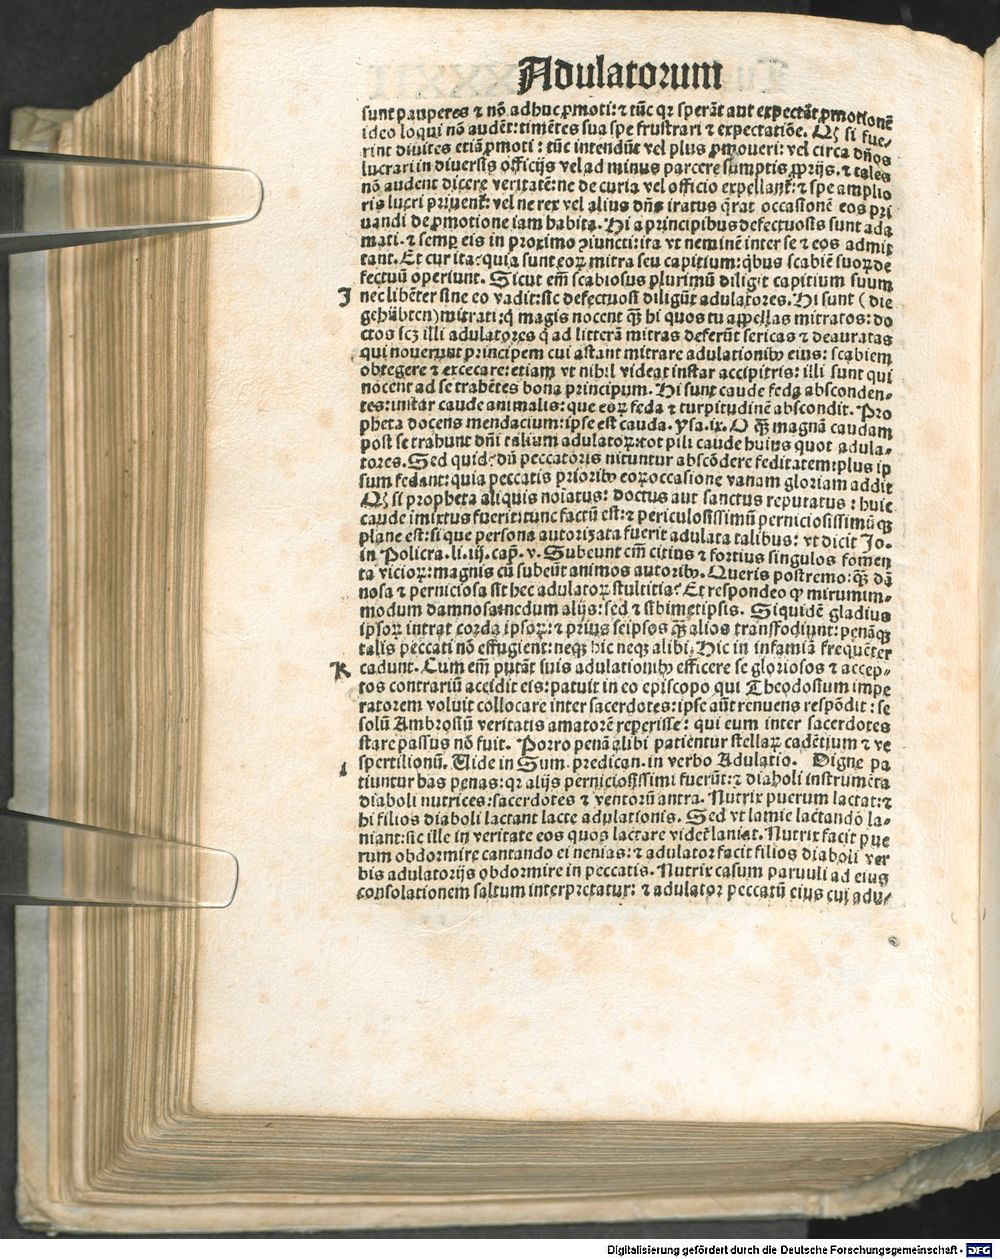 Adulatorum
sunt pauperes ⁊ nõ adhuc ꝓmoti: ⁊ tũc qꝛ sperãt aut expectãt ꝓmotionẽ
ideo loqui nõ audẽt: timẽtes sua spe frustrari ⁊ expectatiõe. Qꝫ si fue⸗
rint diuites etiã ꝓmoti: tũc intendũt vel plus ꝓmoueri: vel circa dños
lucrari in diuersis officijs vel ad minus parcere sumptis ꝓprijs. ⁊ tales
nõ audent dicere veritatẽ: ne de curia vel officio expellant᷑: ⁊ spe amplio
ris lucri priuent᷑: vel ne rex vel alius dñs iratus q̃rat occasionẽ eos pri
uandi de ꝓmotione iam habita. Hi a principibus defectuosis sunt ada
mati. ⁊ semꝑ eis in proximo ꝯiuncti: ita vt neminẽ inter se ⁊ eos admit
tant. Et cur ita: quia sunt eoꝝ mitra seu capitium: q̃bus scabiẽ suoꝝ de
fectuũ operiunt. Sicut em̃ scabiosus plurimũ diligit capitium suum
J nec libẽter sine eo vadit: sic defectuosi diligũt adulatores. Hi sunt (die
gehübten) mitrati: q̃ magis nocent q̃ꝫ hi quos tu appellas mitratos: do
ctos scꝫ illi adulatores q̃ ad litterã mitras deferũt sericas ⁊ deauratas
qui nouerunt principem cui astant mitrare adulationibꝰ eius: scabiem
obtegere ⁊ excecare: etiam vt nihil videat instar accipitris: illi sunt qui
nocent ad se trahẽtes bona principum. Hi sunt caude feda absconden⸗
tes: instar caude animalis: que eoꝝ feda ⁊ turpitudinẽ abscondit. Pro
pheta docens mendacium: ipse est cauda. ysa. ix. O q̃ꝫ magnã caudam
post se trahunt dñi talium adulatoꝝ: tot pili caude huius quot adula⸗
tores. Sed quid: dũ peccatoris nituntur abscõdere feditatem: plus ip
sum fedant: quia peccatis prioribꝰ eoꝝ occasione vanam gloriam addit
Qꝫ si propheta aliquis noiatus: doctus aut sanctus reputatus: huic
caude imixtus fuerit: tunc factũ est: ⁊ periculosissimũ perniciosissimũqꝫ
plane est: si que persona autorizata fuerit adulata talibus: vt dicit Jo.
in Policra. li. iij. cap. v. Subeunt em̃ citius ⁊ fortius singulos fomen
ta vicioꝝ: magnis cũ subeũt animos autoribꝰ. Queris postremo: q̃ꝫ dã
nosa ⁊ perniciosa sit hec adulatoꝝ stultitia: Et respondeo ꝙ mirumim⸗
modum damnosa: nedum alijs: sed ⁊ sibimetipsis. Siquidẽ gladius
ipsoꝝ intrat corda ipsoꝝ: ⁊ prius seipsos q̃ꝫ alios transfodiunt: penãqꝫ
talis peccati nõ effugient: neqꝫ hic neqꝫ alibi. Hic in infamiã frequẽter
K cadunt. Cum em̃ putãt suis adulationibꝰ efficere se gloriosos ⁊ accep⸗
tos contrariũ accidit eis: patuit in eo episcopo qui Theodosium impe
ratorem voluit collocare inter sacerdotes: ipse aũt renuens respõdit: se
solũ Ambrosiũ veritatis amatorẽ reperisse: qui eum inter sacerdotes
stare passus nõ fuit. Porro penã alibi patientur stellaꝝ cadẽtium ⁊ ve
spertilionũ. Vide in Sum. predican. in verbo Adulatio. Digne pa
tiuntur has penas: qꝛ alijs perniciosissimi fuerũt: ⁊ diaboli instrumẽta
diaboli nutrices: sacerdotes ⁊ ventorũ antra. Nutrix puerum lactat: ⁊
hi filios diaboli lactant lacte adulationis. Sed vt lamie lactando la⸗
niant: sic ille in veritate eos quos lactare videt᷑ laniat. Nutrix facit pue
rum obdormire cantando ei nenias: ⁊ adulator facit filios diaboli ver
bis adulatorijs obdormire in peccatis. Nutrix casum paruuli ad eius
consolationem saltum interpretatur: ⁊ adulator peccatũ eius cui adu⸗
Digitalisierung gefördert durch die Deutsche Forschungsgemeinschaft - DFG